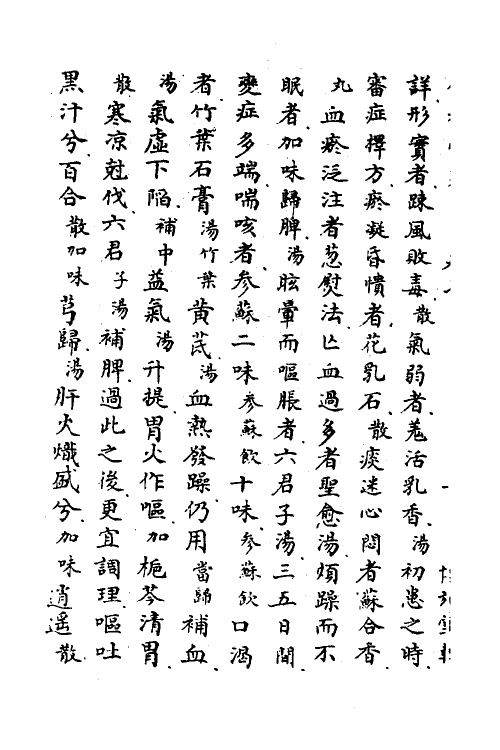 詳形實者踈風敗毒散氣弱者羗活乳香湯初患之時
審症擇方瘀凝昏憒者花乳石散痰迷心悶者蘇合香
丸血瘀泛注者葱熨法亡血過多者聖愈湯煩躁而不
眠者加味歸脾湯眩暈而嘔脹者六君子湯三五日間
變症多端喘咳者參蘇二味參蘇飲十味參蘇飲口渴
者竹葉石膏湯竹葉黃芪湯血熱發躁仍用當歸補血
湯氣虛下陷補中益氣湯升提胃火作嘔加梔芩清胃
散寒凉尅伐六君子湯補脾過此之後更宜調理嘔吐
黑汁兮百合散加味芎歸湯肝火熾盛兮加味逍遥散